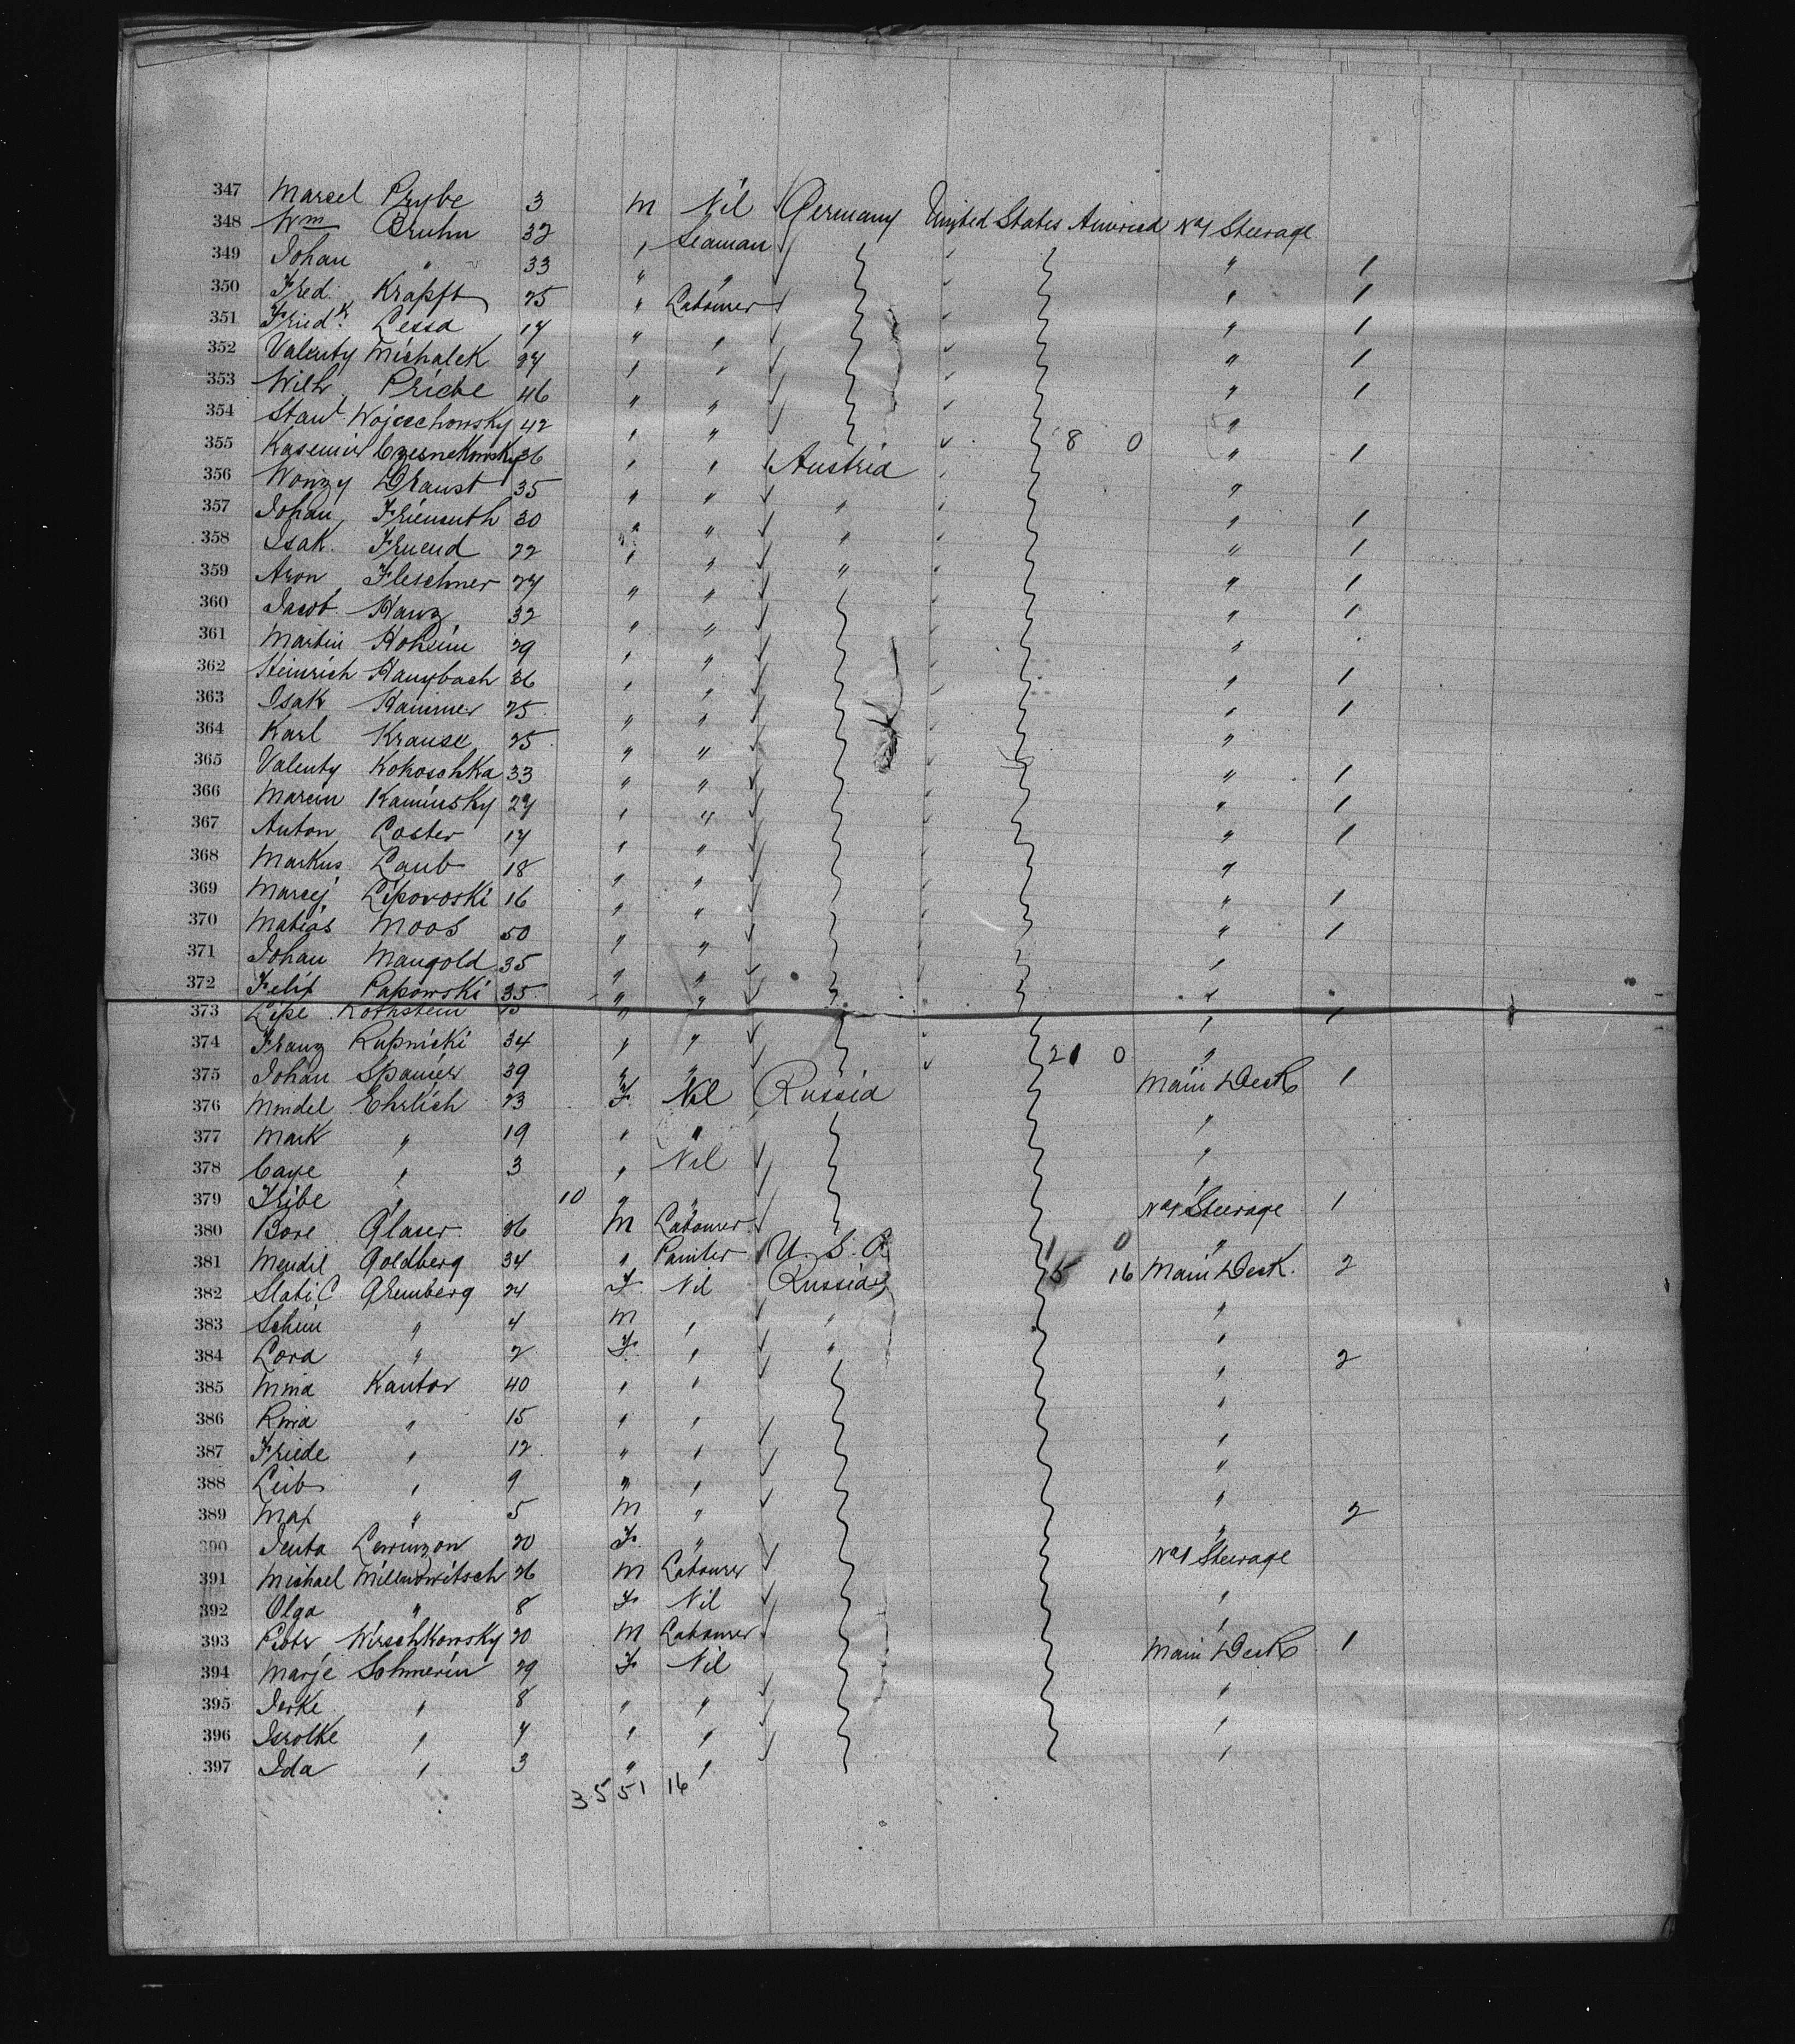 347 Marcel Prybe 3 M Nil Germany United States America No 1 Steerage
348 Wm Bruhn 32 " Seaman
349 Johan " 33 " " " 1
350 Fred. Krapft 25 " Labourer " 1
351 Friedk. Lessa 17 " " " 1
352 Valenty Michalek 27 " " " 1
353 Wilh. Priebe 46 " " " 1
354 Stanl. Wojcechowsky 42 " " " 8 0
355 Kasemier Czesnekowsky 36 " " Austria " 1
356 Wonzy Draust 35 " " " "
357 Johan Friemuth 30 " " " " 1
358 Isak Fruend 22 " " " " 1
359 Aron Fleschner 27 " " " 1
360 Jacob Kanz 32 " " " 1
361 Martin Kohein 29 " " "
362 Heinrich Kanybach 36 " " " 1
363 Isak Kammer 25 " " " 1
364 Karl Krause 25 " " "
365 Valenty Kokoschka 33 " " " 1
366 Marcin Kaminsky 27 " " " 1
367 Anton Loster 17 " " " 1
368 Markus Laub 18 " " "
369 Marcej Lipowoski 16 " " " 1
370 Matias Moos 50 " " " 1
371 Johan Mangold 35 " " "
372 Felix Papowski 35 " " "
373 Lipe Rothstein " " " 1
374 Franz Rupnicki 34 " " " 21 0
375 Johan Spanier 39 " " Main Deck 1
376 Mindel Ehrlich 23 F Nil Russia
377 Mark " 19 " " "
378 Caye " 3 " Nil "
379 Tribe " 10 " " No 1 Steerage 1
380 Bore Glaser 36 M Labourer "
381 Mendel Goldberg 34 " Painter U. S. A 1 0 Main Deck. 2
382 Slati C Grunberg 24 F Nil Russia 15 16
383 Schim " 4 M " " "
384 Lora " 2 F " " " 2
385 Mina Kantor 40 " " "
386 Rivia " 15 " " "
387 Friede " 12 " " "
388 Leib " 9 " " "
389 Max " 5 M " " 2
390 Jenta Lewinzon 20 F " "
391 Michael Millenowitsch 26 M Labourer No 1 Steerage
392 Olga " 8 F Nil "
393 Peter Wirschkowsky 20 M Labourer " 1
394 Marje Schmerin 29 F Nil Main Deck
395 Jerke " 8 " " "
396 Isrolke " 7 " " "
397 Ida " 3 " " "
35 51 16